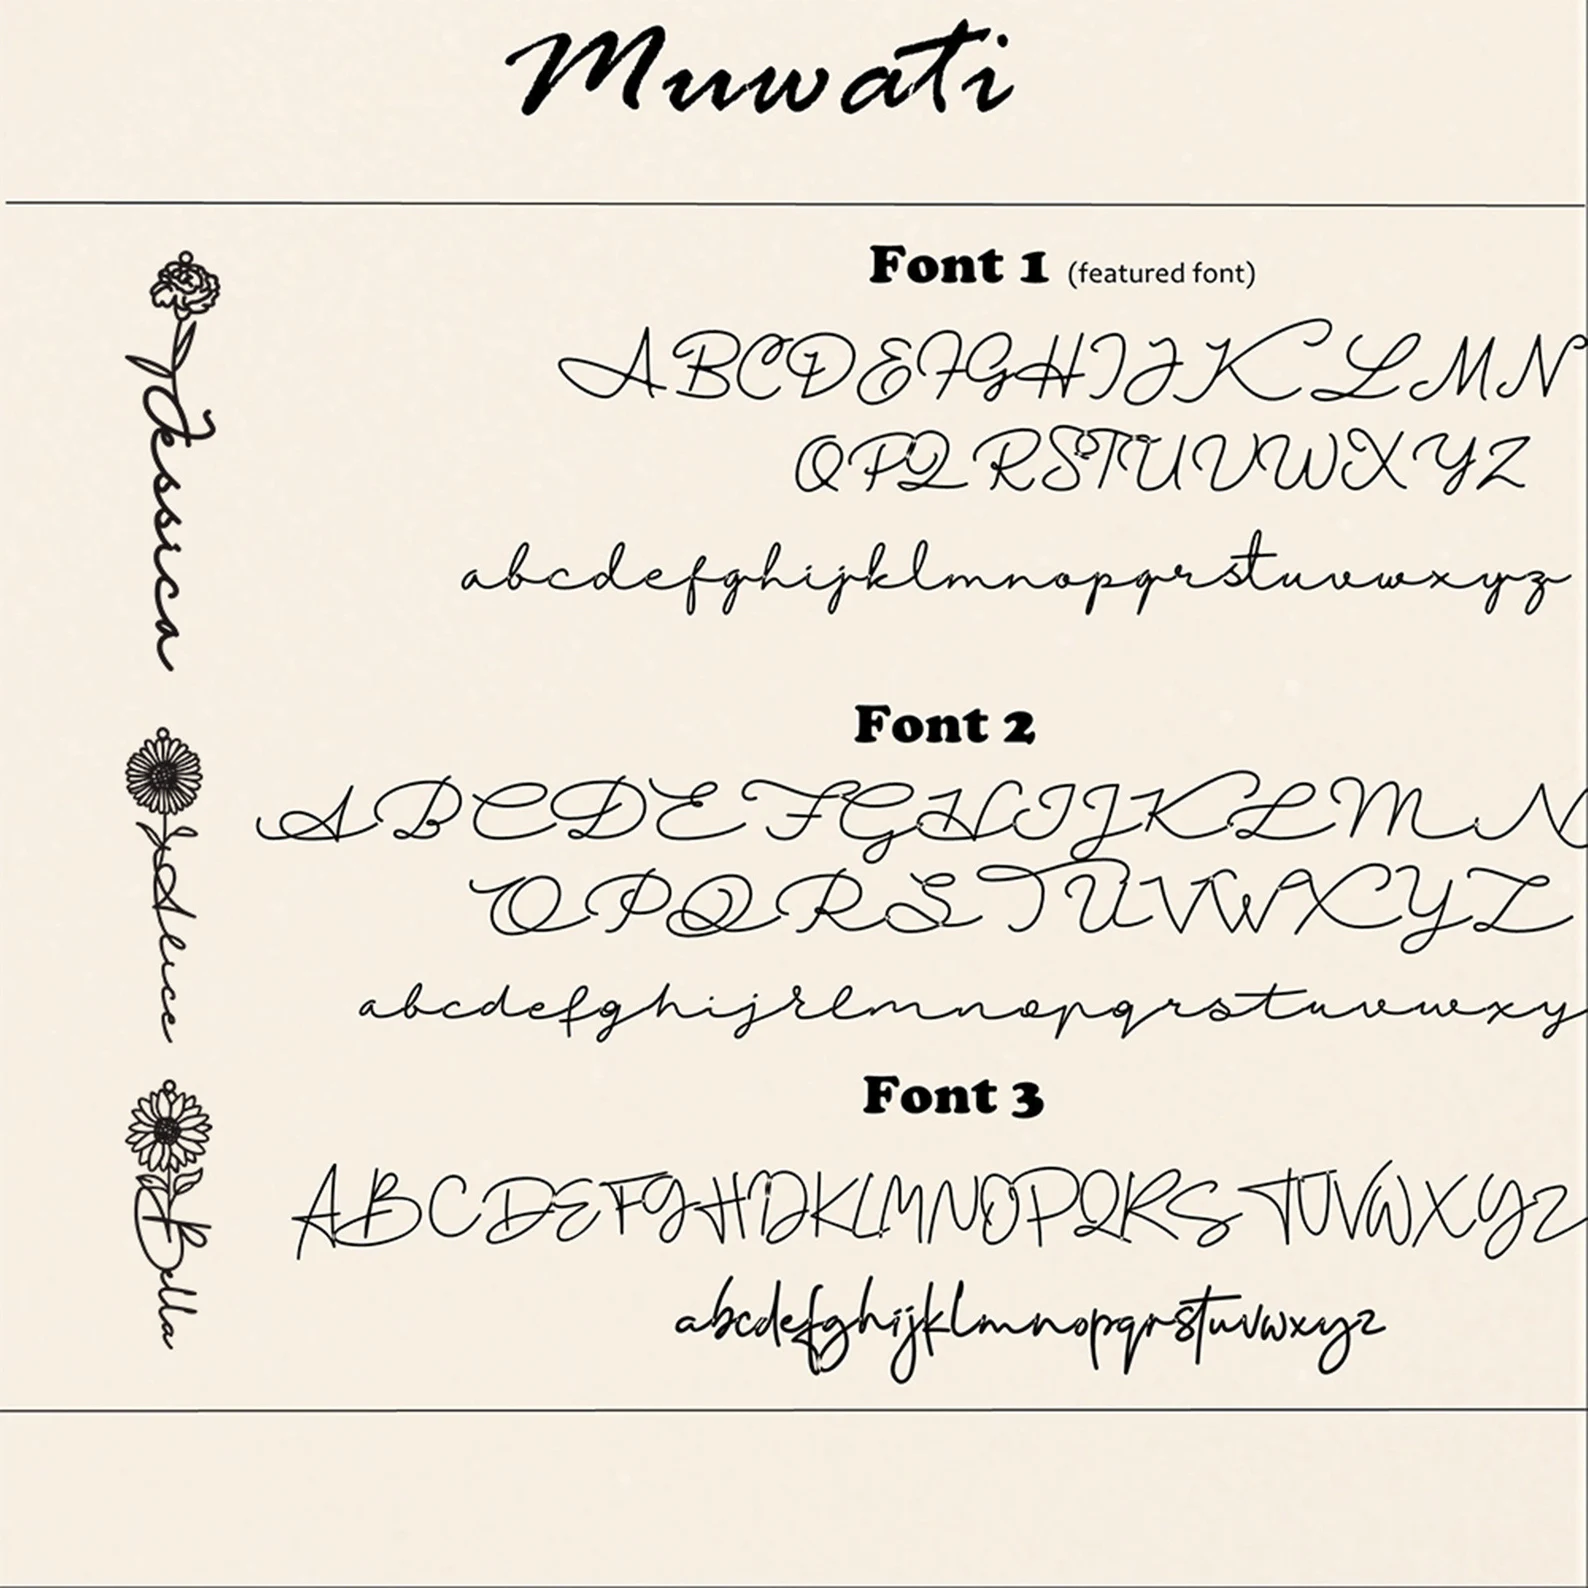 Muwati
Font 1 (featured font)
ABCDEFGHIJKLMN
OPQRSTUVWXYZ
abcdefghijklmnopqrstuvwxyz
Jessica
Font 2
ABCDEFGHIJKLMN
OPQRSTUVWXYZ
abcdefghijklmnopqrstuvwxy
Aluce
Font 3
ABCDEFGHIJKLMNOPQRSTUVWXYZ
abcdefghijklmnopqrstuvwxyz
Bella